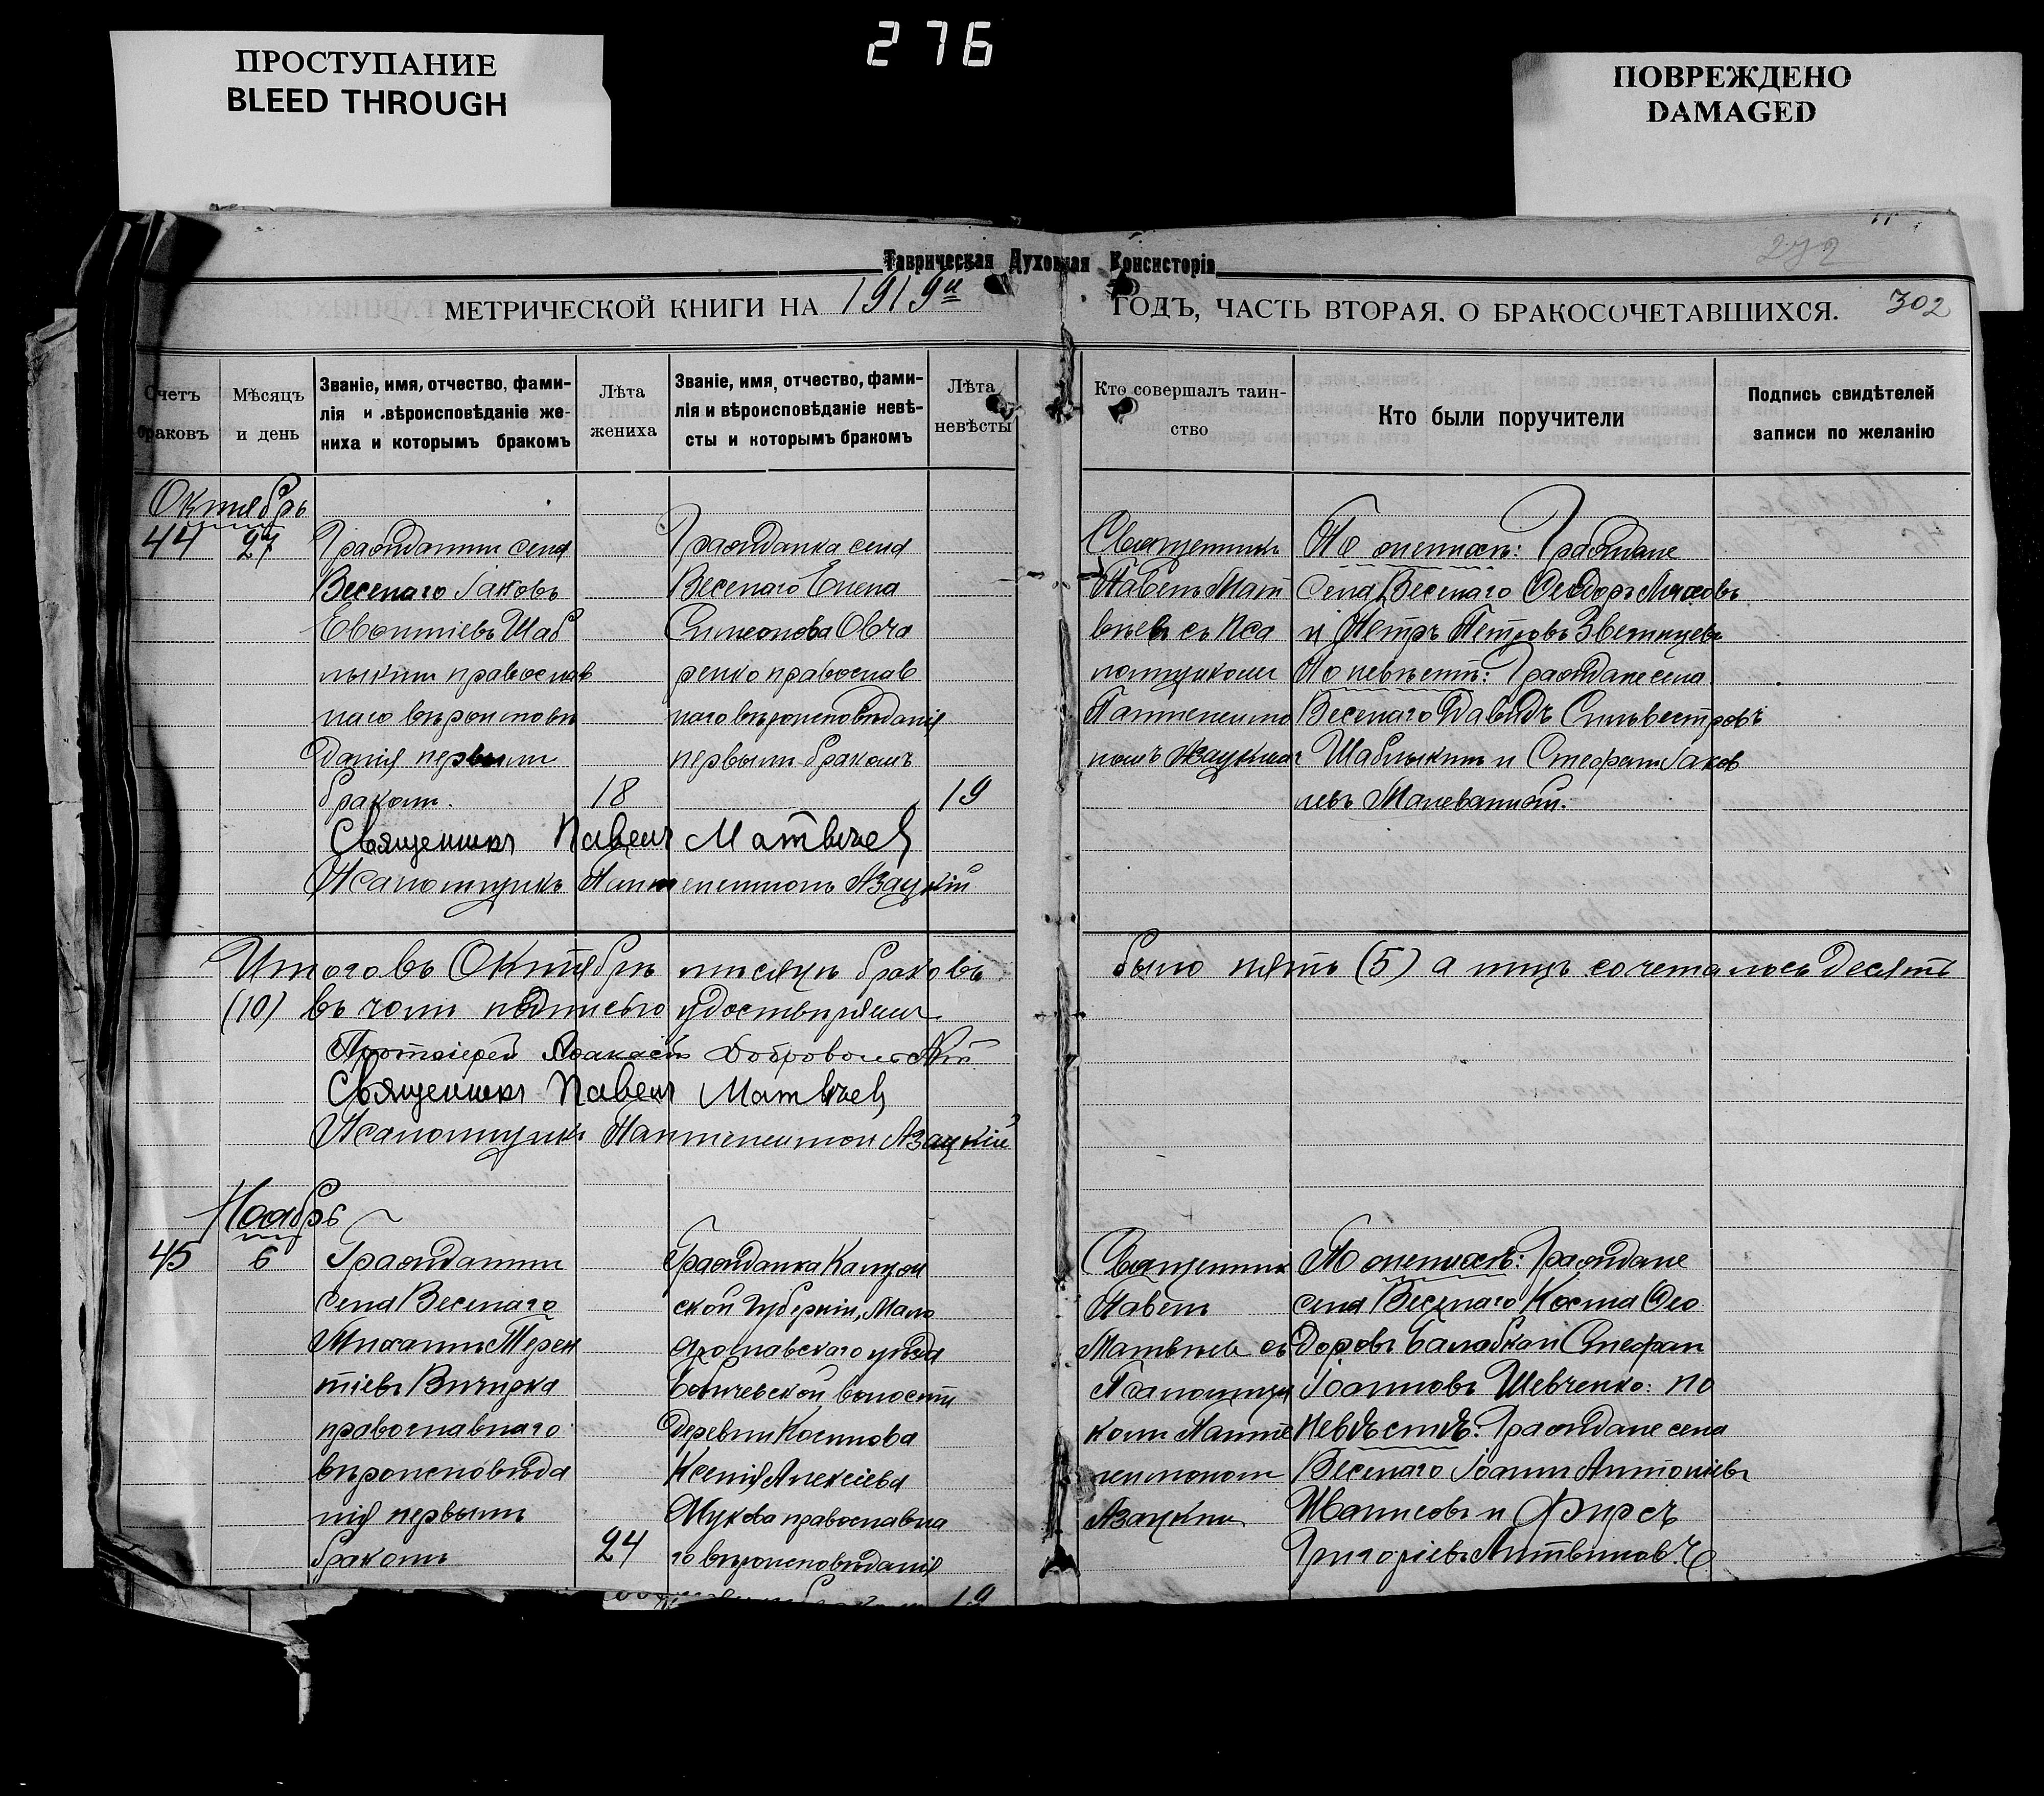 276
ПРОСТУПАНИЕ
BLEED THROUGH
ПОВРЕЖДЕНО
DAMAGED
272
Таврическая Духовная Консисторія
МЕТРИЧЕСКОЙ КНИГИ НА 1919й ГОДЪ, ЧАСТЬ ВТОРАЯ. О БРАКОСОЧЕТАВШИХСЯ. 302
Счетъ
браковъ
Мѣсяцъ
и день
Званіе, имя, отчество, фами-
лія и вѣроисповѣданіе же-
ниха и которымъ бракомъ
Лѣта
жениха
Званіе, имя, отчество, фами-
лія и вѣроисповѣданіе невѣ-
сты и которымъ бракомъ
Лѣта
невѣсты
Кто совершалъ таин-
ство
Кто были поручители
Подпись свидѣтелей
записи по желанію
Октябрь
44
27
Гражданинъ села
Веселаго Іаковъ
Евѳиміевъ Шаб
лыкинъ православ
наго вѣроисповѣ
данія первымъ
бракомъ.
18
Гражданка села
Веселаго Елена
Симеонова Овча
ренко православ
наго вѣроисповѣданія
первымъ бракомъ
19
Священникъ
Павелъ Мат
вѣевъ съ Пса
ломщикомъ
Пантелеимо
номъ Азацкимъ
По женихѣ: Граждане
села Веселаго Ѳеодоръ Ляховъ
и Петръ Петровъ Звегинцевъ
По невѣстѣ: Граждане села
Веселаго Давидъ Сильвестровъ
Шаблыкинъ и Стефанъ Іаков
левъ Малеванный.
Священникъ Павелъ Матвѣев
Псаломщикъ Пантелеимонъ Азацкій
Итого въ Октябрѣ мѣсяцѣ браковъ было пять (5) а лицъ сочеталось десять
(10) въ чемъ подписью удостовѣряемъ
Протоіерей Добровольскій
Священникъ Павелъ Матвѣев
Псаломщикъ Пантелеимон Азацкій
Ноябрь
45
6
Гражданинъ
села Веселаго
Михаилъ Терен
тіевъ Вичирка
православнаго
вѣроисповѣда
нія первымъ
бракомъ
24
Гражданка Калуж
ской губерніи, Мало
ярославскаго уѣзда
волости
деревни Косилова
Ксенія Алексіева
Жукова православна
го вѣроисповѣданія
19
Священникъ
Павелъ
Матвѣевъ съ
Псаломщи
комъ Панте
леимономъ
Азацкимъ
По женихѣ: Граждане
села Веселаго Косма Ѳео
доровъ Балабка и Стефан
Іоанновъ Шевченко: по
невѣстѣ: Граждане села
Веселаго Іоаннъ Антоніевъ
и Фирсъ
Григоріевъ Литвиновъ.